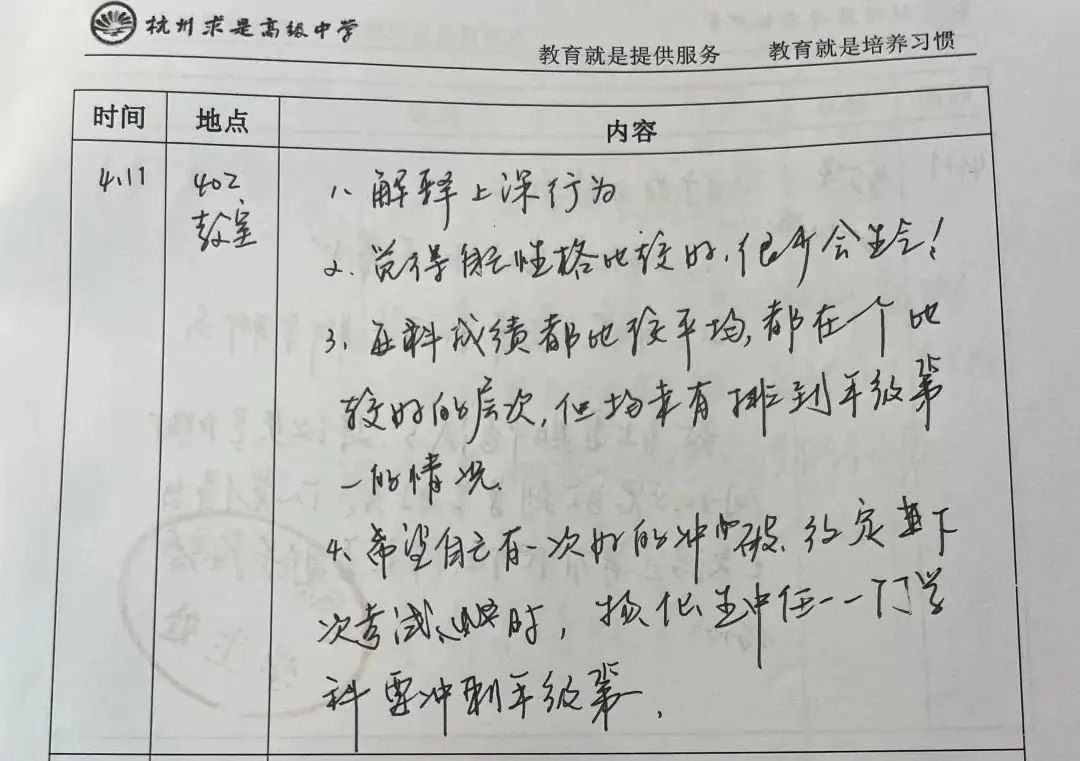 杭州求是高级中学
教育就是提供服务 教育就是培养习惯
时间 地点 内容
4.11 402 1. 解释上深行为
教室
2. 觉得自己性格比较好,很少会生气!
3. 各科成绩都比较平均,都在一个比
较好的层次,但均未有排到年级第
一的情况.
4. 希望自己有一次好的冲破.约定在下
次考试 时, 物化生中任一一门学
科要冲刺年级第一.